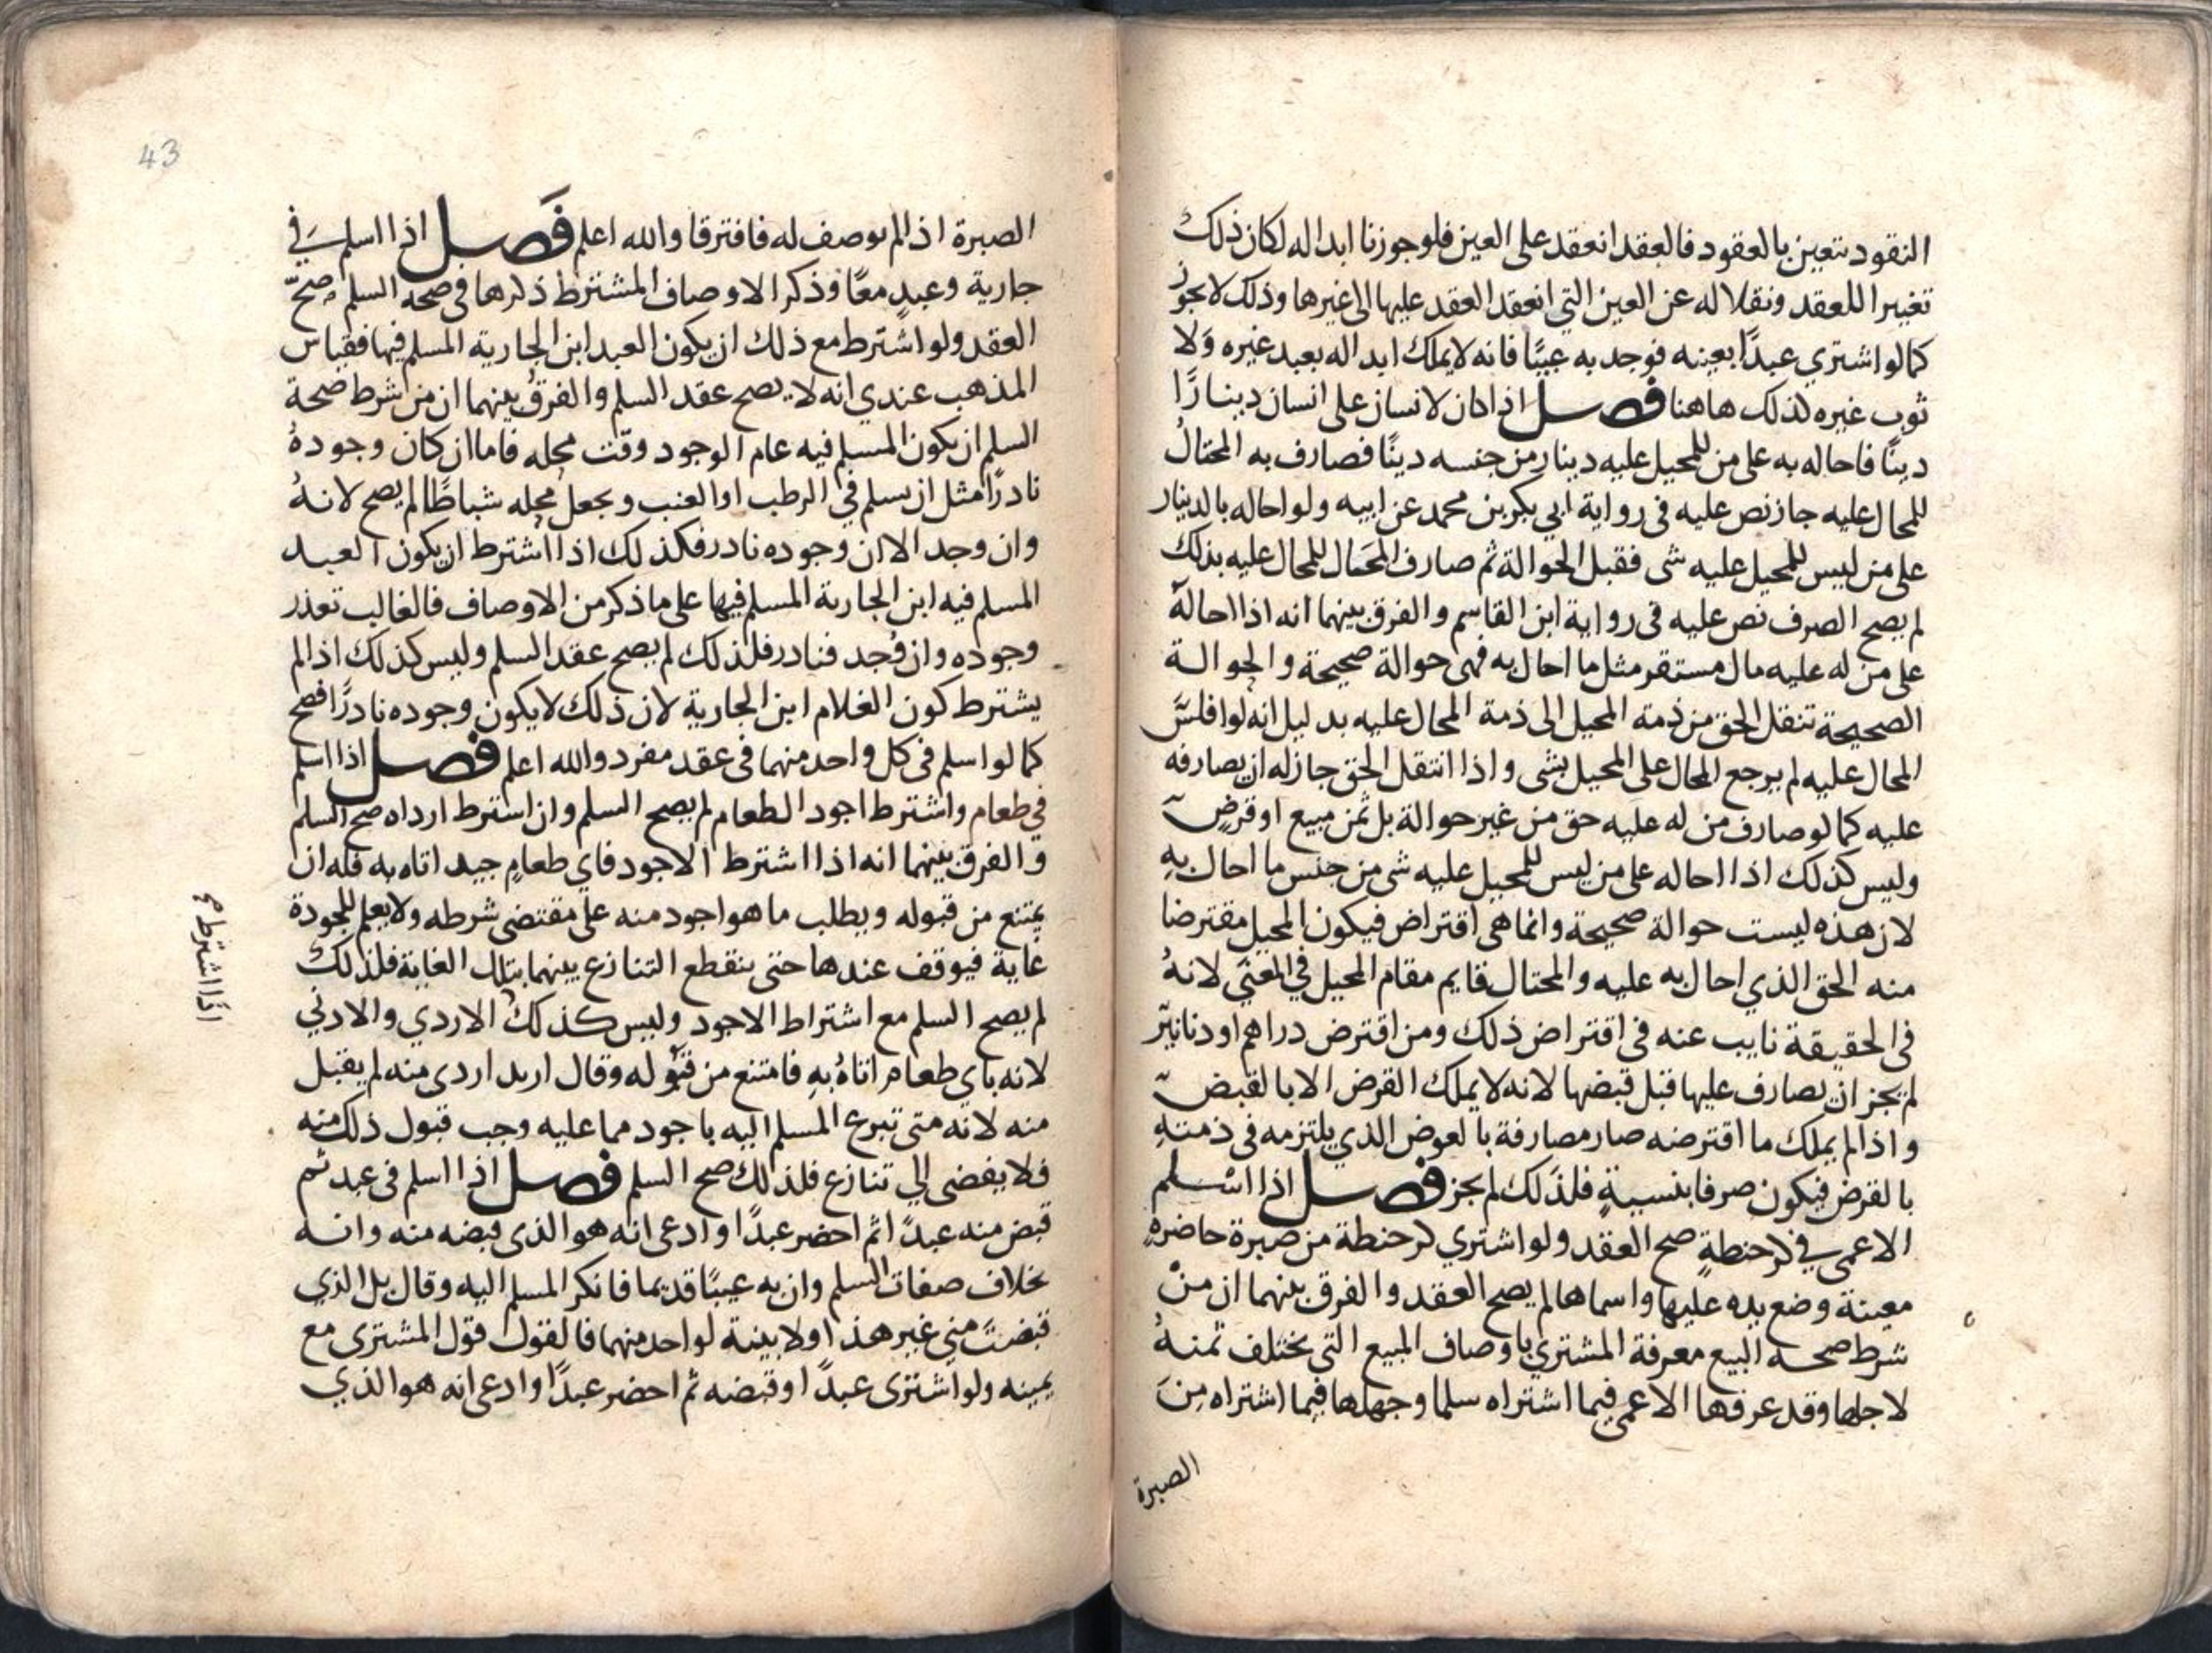 النقود تتعين بالعقود فالعقد انعقد على العين فلو جوزنا ابداله لكان ذلك
تغييرا للعقد ونقلا له عن العين التي انعقد العقد عليها الى غيرها وذلك لا يجوز
كما لو اشتري عبدًا بعينه فوجد به عيبًا فانه لا يملك ابداله بعبد غيره وَلا
ثوب غيره لذلك هاهنا فصل اذا كان لانسان على انسان دينارًا
دينًا فاحاله به على من للمحيل عليه دينار من جنسه دينًا فصارف به المحتالُ
للمحال عليه جاز نص عليه فى رواية ابي بكر بن محمد عن ابيه ولو احاله بالدينار
على من ليس للمحيل عليه شى فقبل الحوالة ثم صارف المحتال للمحال عليه بذلك
لم يصح الصرف نص عليه فى رواية ابن القاسم والفرق بينهما انه اذا احالهُ
على من له عليه مال مستقر مثل ما احال به فهى حوالة صحيحة والحوالة
الصحيحة تنقل الحق من ذمة المحيل الى ذمة المحال عليه بدليل انه لو افلسَ
المحال عليه لم يرجع المحال على المحيل بشى واذا انتقل الحق جاز له ان يصارفه
عليه كما لو صارف من له عليه حق من غير حوالة بل ثمن مبيع او قرضٍ
وليس كذلك اذا احاله على من ليس للمحيل عليه شى من جنس ما احال بهِ
لان هذه ليست حوالة صحيحة وانما هى اقتراض فيكون المحيل مقترضا
منه الحق الذي احال به عليه والمحتال قايم مقام المحيل في المعني لانهُ
فى الحقيقة نايب عنه فى اقتراض ذلك ومن اقترض دراهم او دنانيرَ
لم يجز ان يصارف عليها قبل قبضها لانه لا يملك القرض الا بالقبضِ
واذا لم يملك ما اقترضه صار مصارفة بالعوض الذي يلتزمه فى ذمتهِ
بالقرض فيكون صرفا بنسيةٍ فلذلك لم يجز فصل اذا اسلم
الاعمى في كر حنطةٍ صح العقد ولو اشتري كر حنطة من صبرة حاضرةٍ
معينة وضع يده عليها واسماها لم يصح العقد والفرق بينهما ان منْ
شرط صحه البيع معرفة المشتري باوصاف المبيع التى يختلف ثمنهُ
لاجلها وقد عرفها الاعمى فيما اشتراه سلما وجهلها فيما اشتراه مِنَ
الصبرة
43
الصبرة اذا لم توصف له فافترقا والله اعلم فَصل اذا اسلم في
جارية وعبدٍ معًا وذكر الاوصاف المشترط ذكرها فى صحه السلم صحّ
العقد ولو اشترط مع ذلك ان يكون العبد ابن الجارية المسلم فيها فقياس
المذهب عندي انه لا يصح عقد السلم والفرقُ بينهما ان من شرط صحة
السلم ان يكون المسلم فيه عام الوجود وقت محله فاما ان كان وجودهُ
نادرًا مثل ان يسلم في الرطب او العنب ويجعل محله شباطًا لم يصح لانهُ
وان وجد الا ان وجوده نادر فكذلك اذا اشترط ان يكون العبد
المسلم فيه ابن الجارية المسلم فيها على ما ذكر من الاوصاف فالغالب تعذر
وجوده وان وُجد فنادر فلذلك لم يصح عقد السلم وليس كذلك اذا لم
يشترط كون الغلام ابن الجارية لان ذلك لا يكون وجوده نادرًا فصح
كما لو اسلم فى كل واحد منهما فى عقد مفرد والله اعلم فصل اذا اسلم
في طعام واشترط اجود الطعام لم يصح السلم وان اشترط ارداه صح السلم
والفرق بينهما انه اذا اشترط الاجود فاي طعامٍ جيد اتاه به فله ان
يمتنع من قبوله ويطلب ما هو اجود منه على مقتضى شرطه ولا يعلم للجودة
غاية فيوقف عندها حتى ينقطع التنازع بينهما بتلك الغاية فلذلك
لم يصح السلم مع اشتراط الاجود وليس كذلك الاردي والادني
لانه باي طعام اتاهُ بهِ فامتنع من قبوله وقال اريد اردى منه لم يقبل
منه لانه متى تبرع المسلم اليه باجود مما عليه وجب قبول ذلك منه
فلا يفضى الي تنازع فلذلك صح السلم فصل اذا اسلم فى عبد ثم
قبض منه عبدًا ثم احضر عبدًا وادعى انه هو الذى قبضه منه وانه
بخلاف صفات السلم وان به عيبًا قديما فانكر المسلم اليه وقال بل الذي
قبضتَ مني غير هذا ولا بينة لواحد منهما فالقول قول المشترى مع
يمينه ولو اشترى عبدًا وقبضه ثم احضر عبدًا وادعى انه هو الذي
اذا اشترط صح